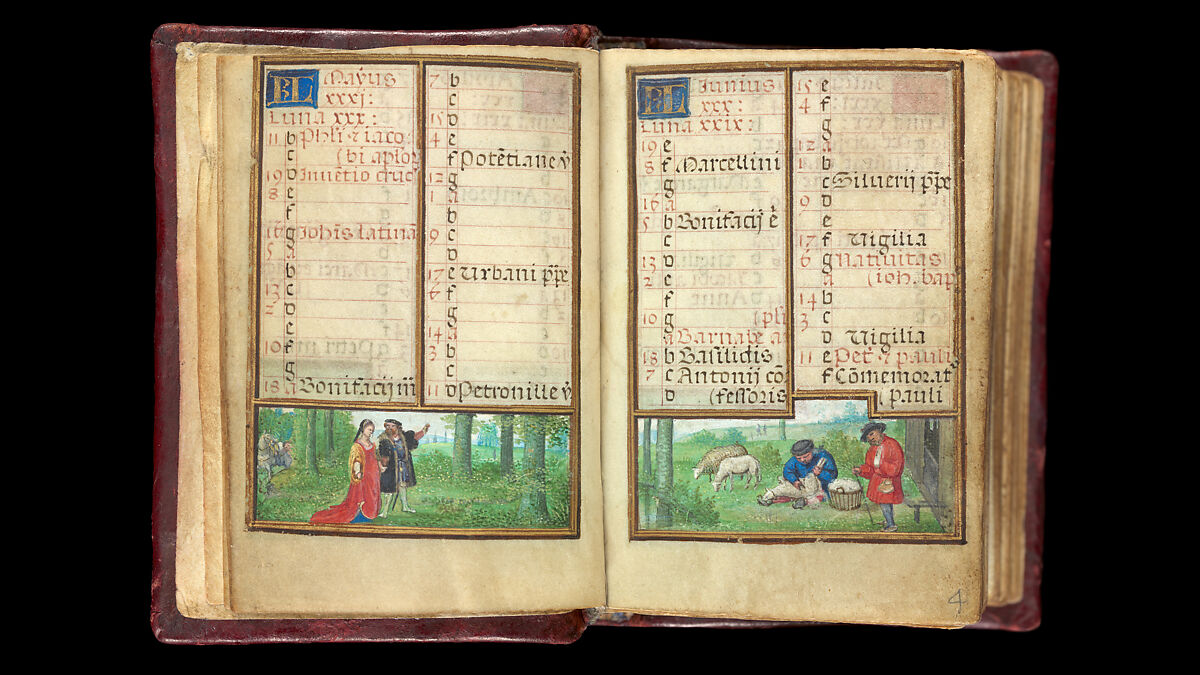 KL Mayus
xxxj:
Luna xxx:
11 b Phli ⁊ iaco
c (bi aplor
19 d Inuētio cruc
8 e
f
16 g Iohīs latinā
5 a
b
13 c
2 d
e
10 f
g
18 a Bonifacij m̄
7 b
c
15 d
4 e
f Potētiane v̄
12 g
1 a
b
9 c
d
17 e Urbani pp̄e
6 f
g
14 a
3 b
c
11 d Petronille v̄
KL Iunius
xxx:
Luna xxix:
19 e
8 f Marcellini
g
16 a
5 b Bonifacij ē
c
13 d
2 e
f
10 g (pli
a Barnabe a
18 b Basilidis
7 c Antonij cō
d (fessoris
15 e
4 f
g
12 a
1 b
c Siluerij pp̄e
9 d
e
17 f Uigilia
6 g Natiuitas
a (ioh. bap
14 b
3 c
d Uigilia
11 e Pet ⁊ pauli
f Cōmemorat
(pauli
4